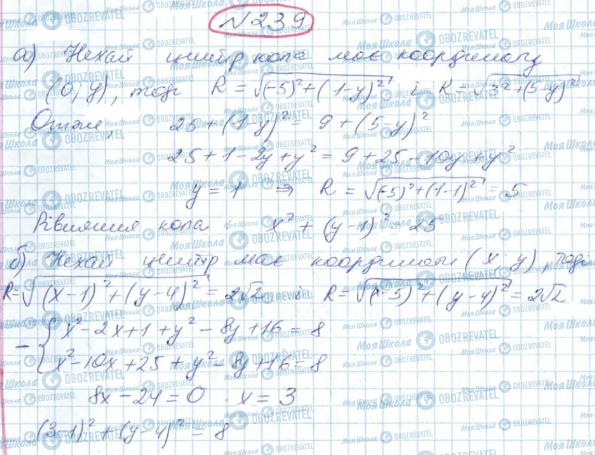 N 239
а) Нехай центр кола має координату
(0; y), тоді R = √((-5)² + (1-y)²) і R = √(3² + (5-y)²)
Отже, 25 + (1-y)² = 9 + (5-y)²
25 + 1 - 2y + y² = 9 + 25 - 10y + y²
y = 1 ⇒ R = √((-5)² + (1-1)²) = 5
Рівняння кола x² + (y-1)² = 25
б) Нехай центр має координати (x; y), тоді
R = √((x-1)² + (y-4)²) = 2√2 і R = √((x-5)² + (y-4)²) = 2√2
- { x² - 2x + 1 + y² - 8y + 16 = 8
x² - 10x + 25 + y² - 8y + 16 = 8
8x - 24 = 0 x = 3
(3-1)² + (y-4)² = 8
Моя Школа
OBOZREVATEL